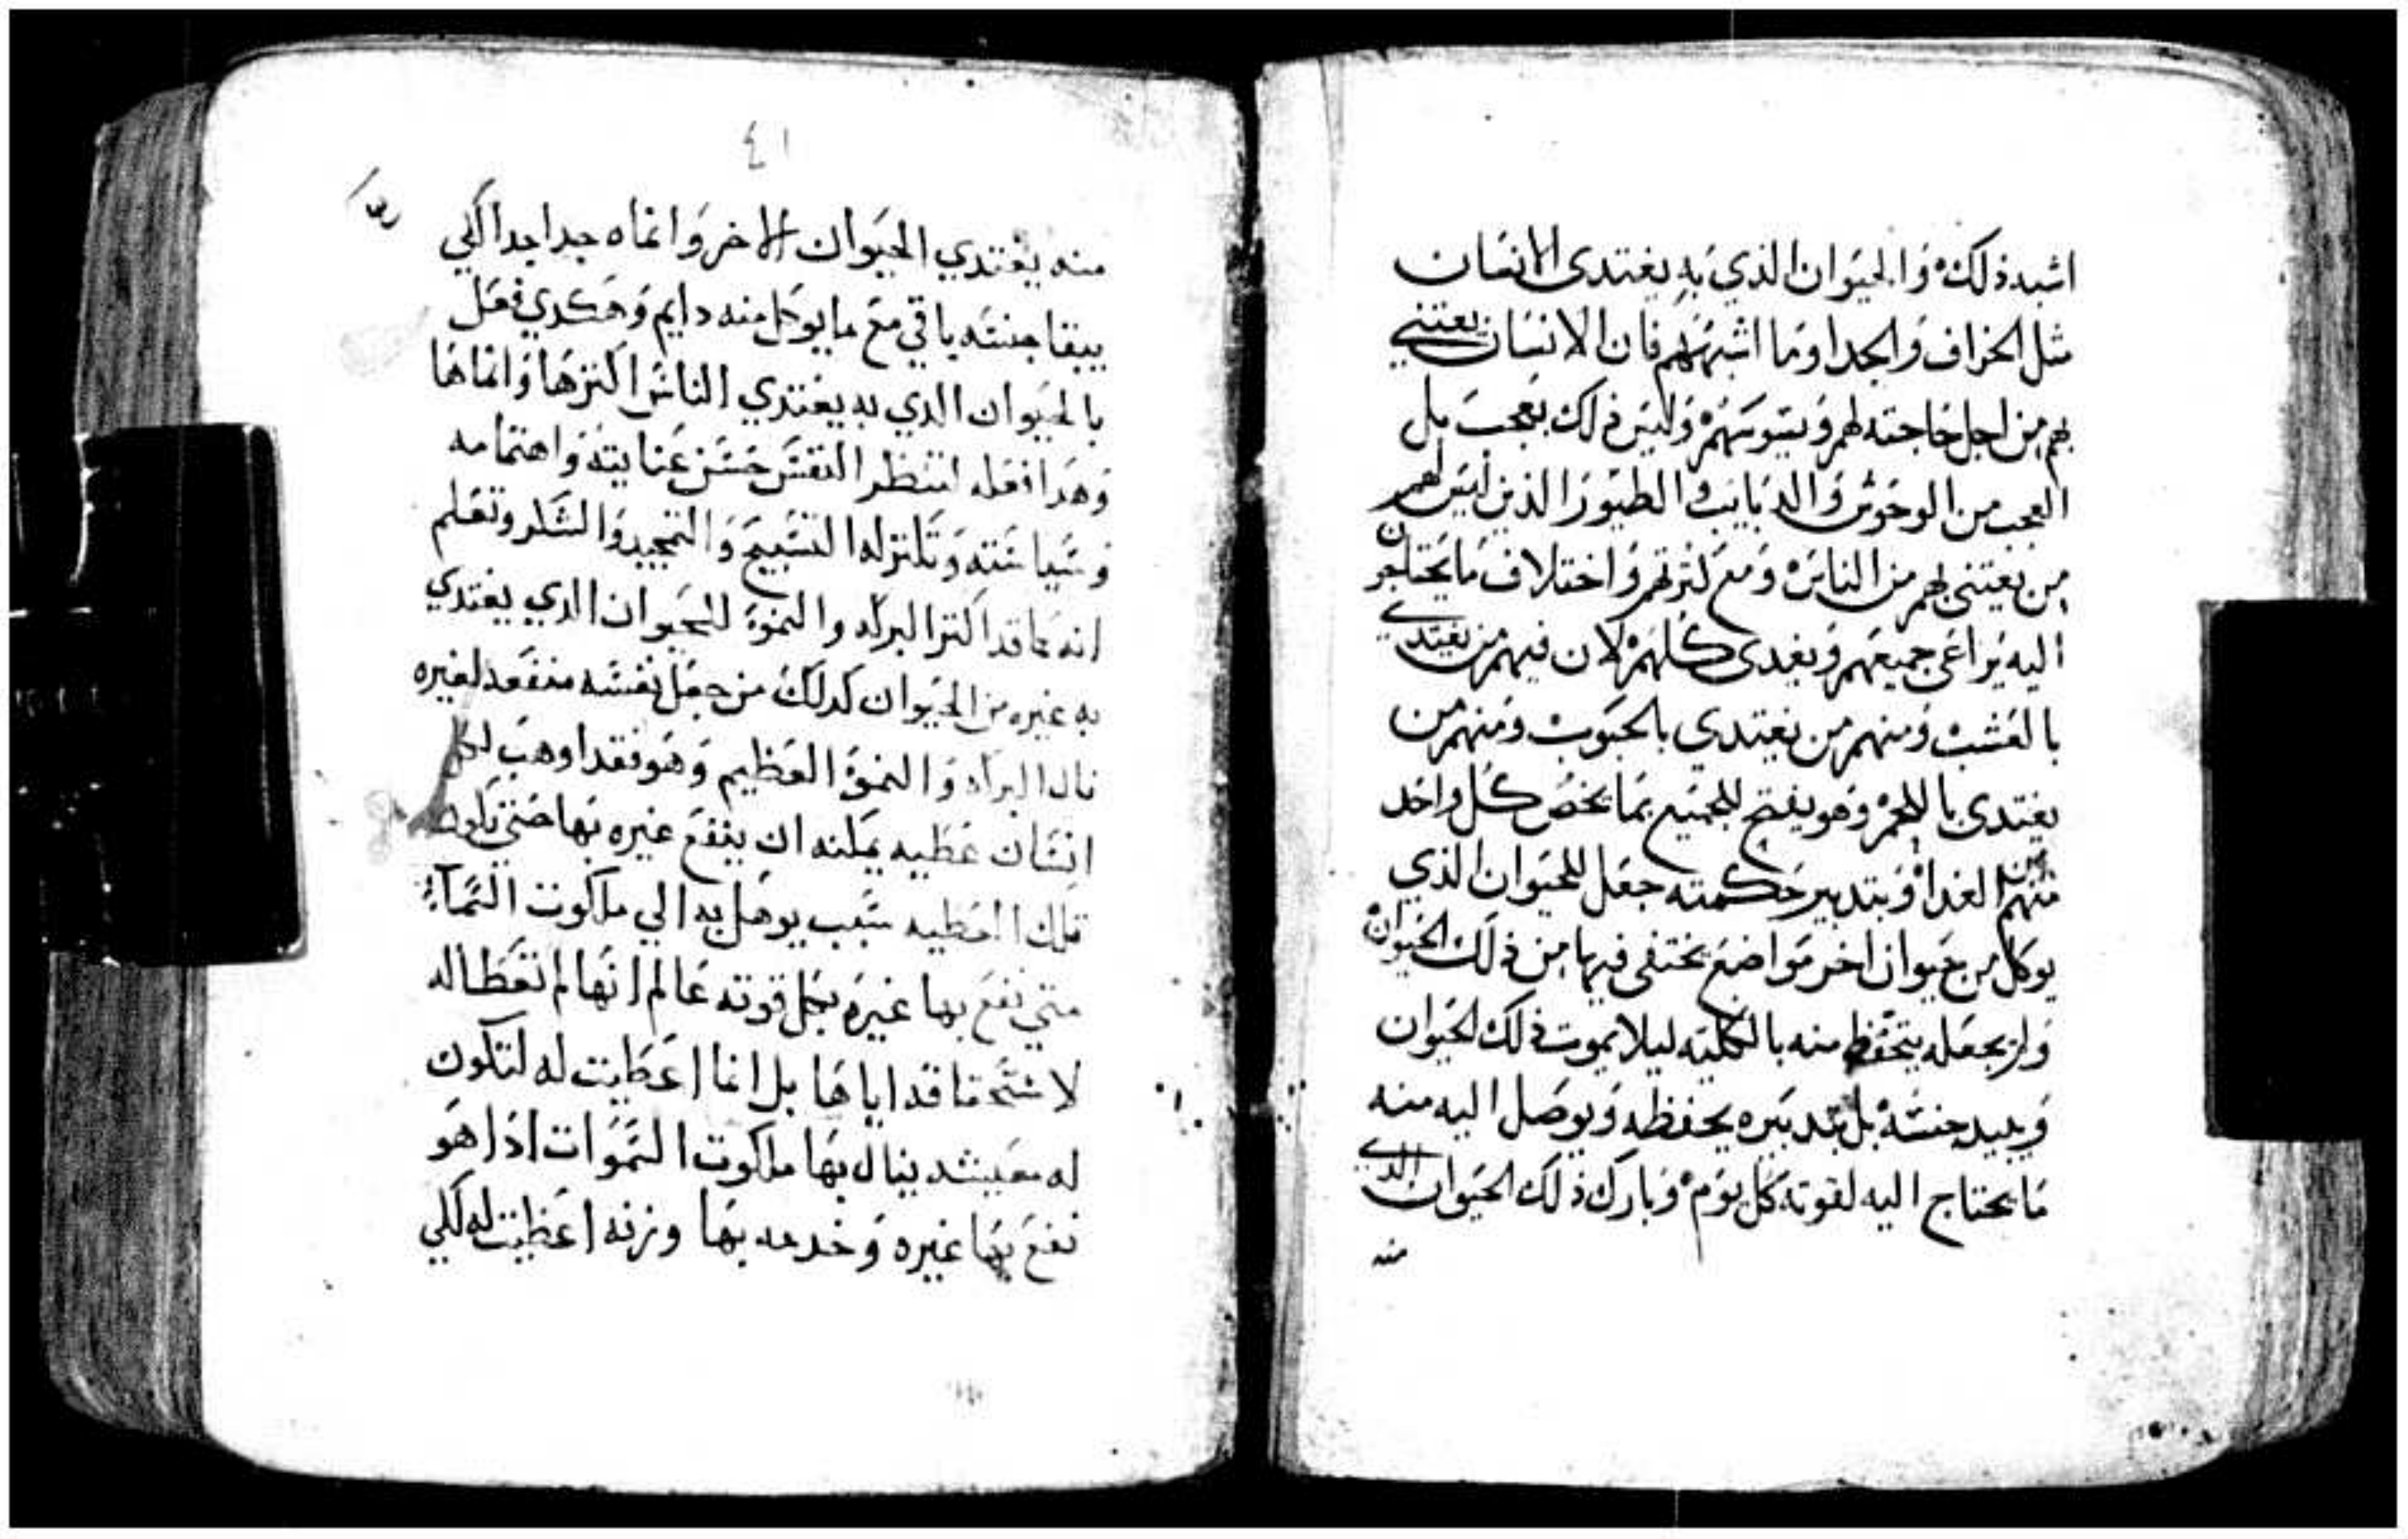 اشبه ذلك وَالحيَوان الذي بَهِ يغتدى الانسَان
مثل الخراف وَالجدا وَما اشبههم فان الانسَان يعتني
بهم من اجل حَاجته لهم وَيسَوسَهمْ وَليَس ذلك بعَجبَ بل
العجب من الوحَوش وَالدبَايب وَالطيَورَ الذين ليَس لهم
من يعتنى بهم من الناسَ وَمعَ كثرتهم وَاختلاف مَا يحَتاجون
اليه يَراعَى جميعَهم وَيغدى كلهمْ لان فيهم من يغتدي
بالعَشبْ وَمنهم من يغتدي بالحبَوب وَمنهم من
يغتدى باللحمْ وَهو يفتح للجميَع بمَا يخصُ كل واحَد
منهم من الغدا وَبتدبير حَكمته جعَل للحَيوان الذي
يوكل من حَيوان اخر مَواضعَ يختفى فيها من ذلكَ الحيَوان
وَلم يجعَله يتحَفظ منه بالكليَته ليلا يموت ذلك الحيَوان
وَيبيد جنسَهْ بل بتدبيَره يحَفظه وَيوصَل اليه منه
مَا يحتاج اليه لقوته كل يوَمْ وَبارك ذلك الحيَوان الذي
منه
٤١
منه يغتدي الحيَوان الاخر وَانماه جدا جدا لكي
يبقا جنسَه باقي معَ ما يوكل منه دايم وَهَكدي فعَل
بالحيَوان الدي به يغتدي الناسَ اكترهَا وَانماهَا
وَهَدا فعَله لتنظر النفسَ حسَن عَنايتهَ وَاهتمامه
وَسَياسَته وَتكتر له التسَبيحَ وَالتمجيد وَالشَكر وَتعَلم
انه كما قد اكتر البركه وَالنموَة للحَيوان الدي يغتدي
به غيره من الحيَوان كدلك من جعَل نفسَه منفعَه لغيره
نال البركه وَالنموَة العَظيم وَهَو فقد اوهبَ لكل
انسَان عَطيه يمكنه ان ينفعَ غيره بهَا حَتي تكون
تلك العَطيه سَبب يوصَل به الي ملكوت السَمآء
متي نفعَ بهَا غيرَه بكل قوته عَالم انهَا لم تعَطا له
لاستَحقاقه اياهَا بل انما اعَطيت له لتكون
له معَيشه ينال بهَا ملكوت السَموَات ادَا هَو
نفعَ بهَا غيره وَخدمه بهَا اعَطيت له لكي